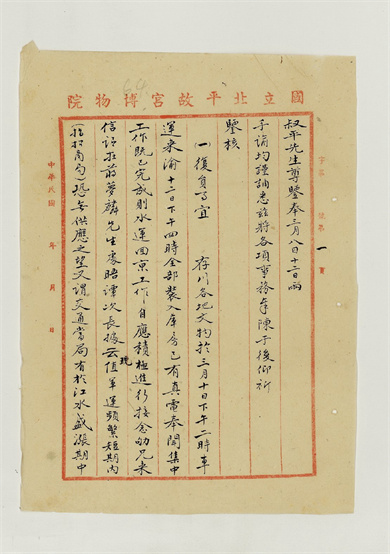 國立北平故宮博物院
字第 號第一頁
叔平先生尊鑒奉三月八日十二日兩
手諭均謹誦悉茲將各項事務奉陳于後仰祈
鑒核
(一)復員事宜 存川各地文物於三月十日下午二時車
運來渝十二日下午四時全部裝入庫房已有真電奉聞集中
工作既已完成則水運回京工作自應積極進行接念劬兄來
信謂在前夢麟先生處晤譚次長據云值軍運頻繁短期內
(招商局)恐無供應之望又謂交通當局有於江水盛漲期中
中華民國 年 月 日